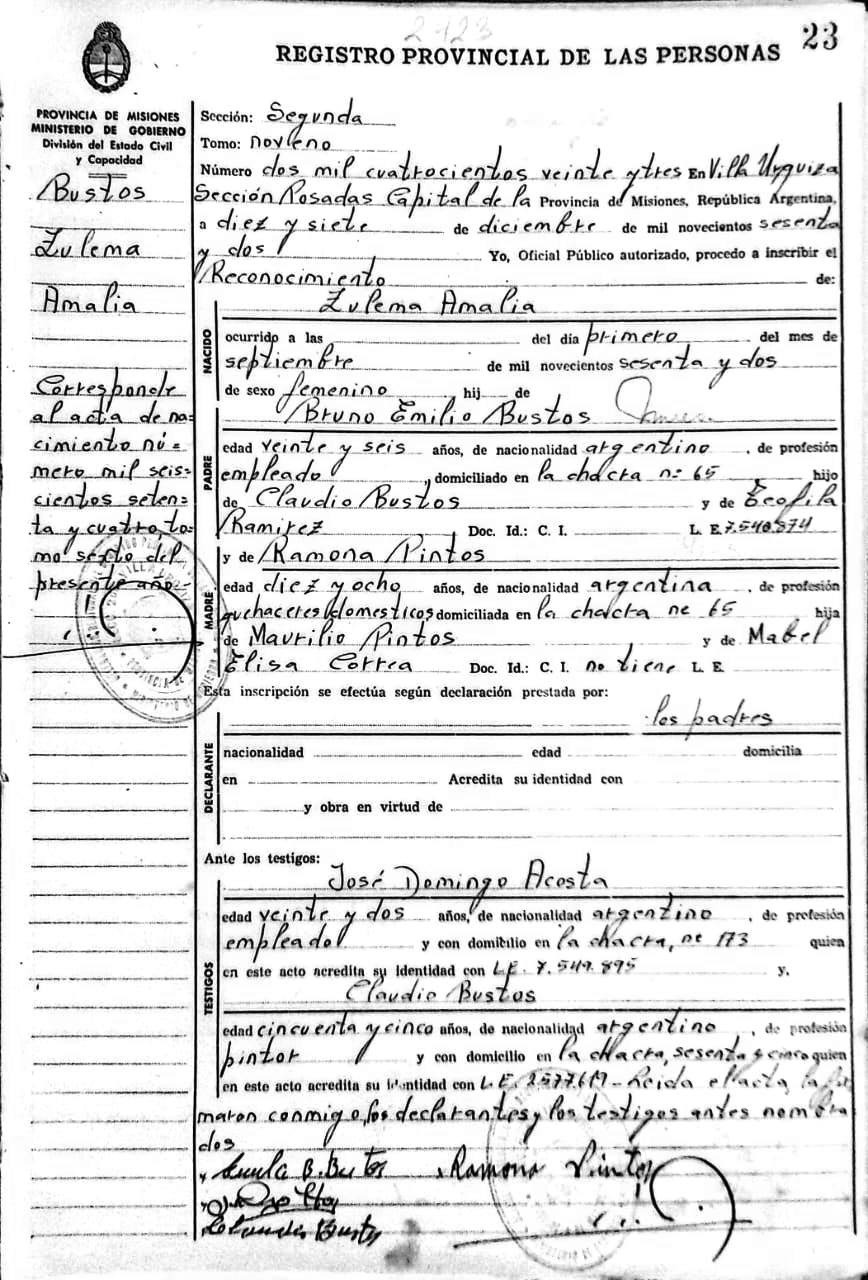 2-123
23
REGISTRO PROVINCIAL DE LAS PERSONAS
PROVINCIA DE MISIONES
MINISTERIO DE GOBIERNO
División del Estado Civil
y Capacidad
Bustos
Zulema
Amalia
Corresponde
al acta de na=
cimiento nú=
mero mil seis=
cientos seten=
ta y cuatro, to=
mo sexto del
presente año-
Sección: Segunda
Tomo: noveno
Número dos mil cuatrocientos veinte y tres En Villa Urquiza
Sección Posadas Capital de la Provincia de Misiones, República Argentina,
a diez y siete de diciembre de mil novecientos sesenta
y dos Yo, Oficial Público autorizado, procedo a inscribir el
Reconocimiento de:
Zulema Amalia
NACIDO
ocurrido a las del día primero del mes de
septiembre de mil novecientos sesenta y dos
de sexo femenino hij de
Bruno Emilio Bustos
PADRE
edad veinte y seis años, de nacionalidad argentino, de profesión
empleado, domiciliado en la chacra nº 65 hijo
de Claudio Bustos y de Teofila
Ramirez Doc. Id.: C. I. L. E. 7.540.874
y de Ramona Pintos
MADRE
edad diez y ocho años, de nacionalidad argentina, de profesión
quehaceres domesticos domiciliada en la chacra nº 65 hija
de Maurilio Pintos y de Mabel
Elisa Correa Doc. Id.: C. I. no tiene L. E.
Esta inscripción se efectúa según declaración prestada por:
los padres
DECLARANTE
nacionalidad edad domicilia
en Acredita su identidad con
y obra en virtud de
Ante los testigos:
José Domingo Acosta
TESTIGOS
edad veinte y dos años, de nacionalidad argentino, de profesión
empleado y con domicilio en la chacra, nº 173 quien
en este acto acredita su Identidad con L.E. 7.549.895 y,
Claudio Bustos
edad cincuenta y cinco años, de nacionalidad argentino, de profesión
pintor y con domicilio en la chacra, sesenta y cinco quien
en este acto acredita su identidad con L.E. - Leida el acta, la fir
maron conmigo, los declarantes y los testigos antes nombra
dos
B. Bustos Ramona Pintos
Claudio Bustos